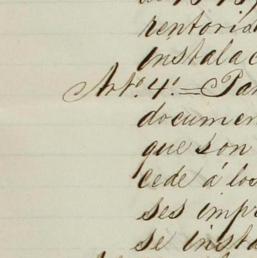 rentoria
instalac
Arto. 4o.=Par
documen
que son
cede á los
ses impr
se insta